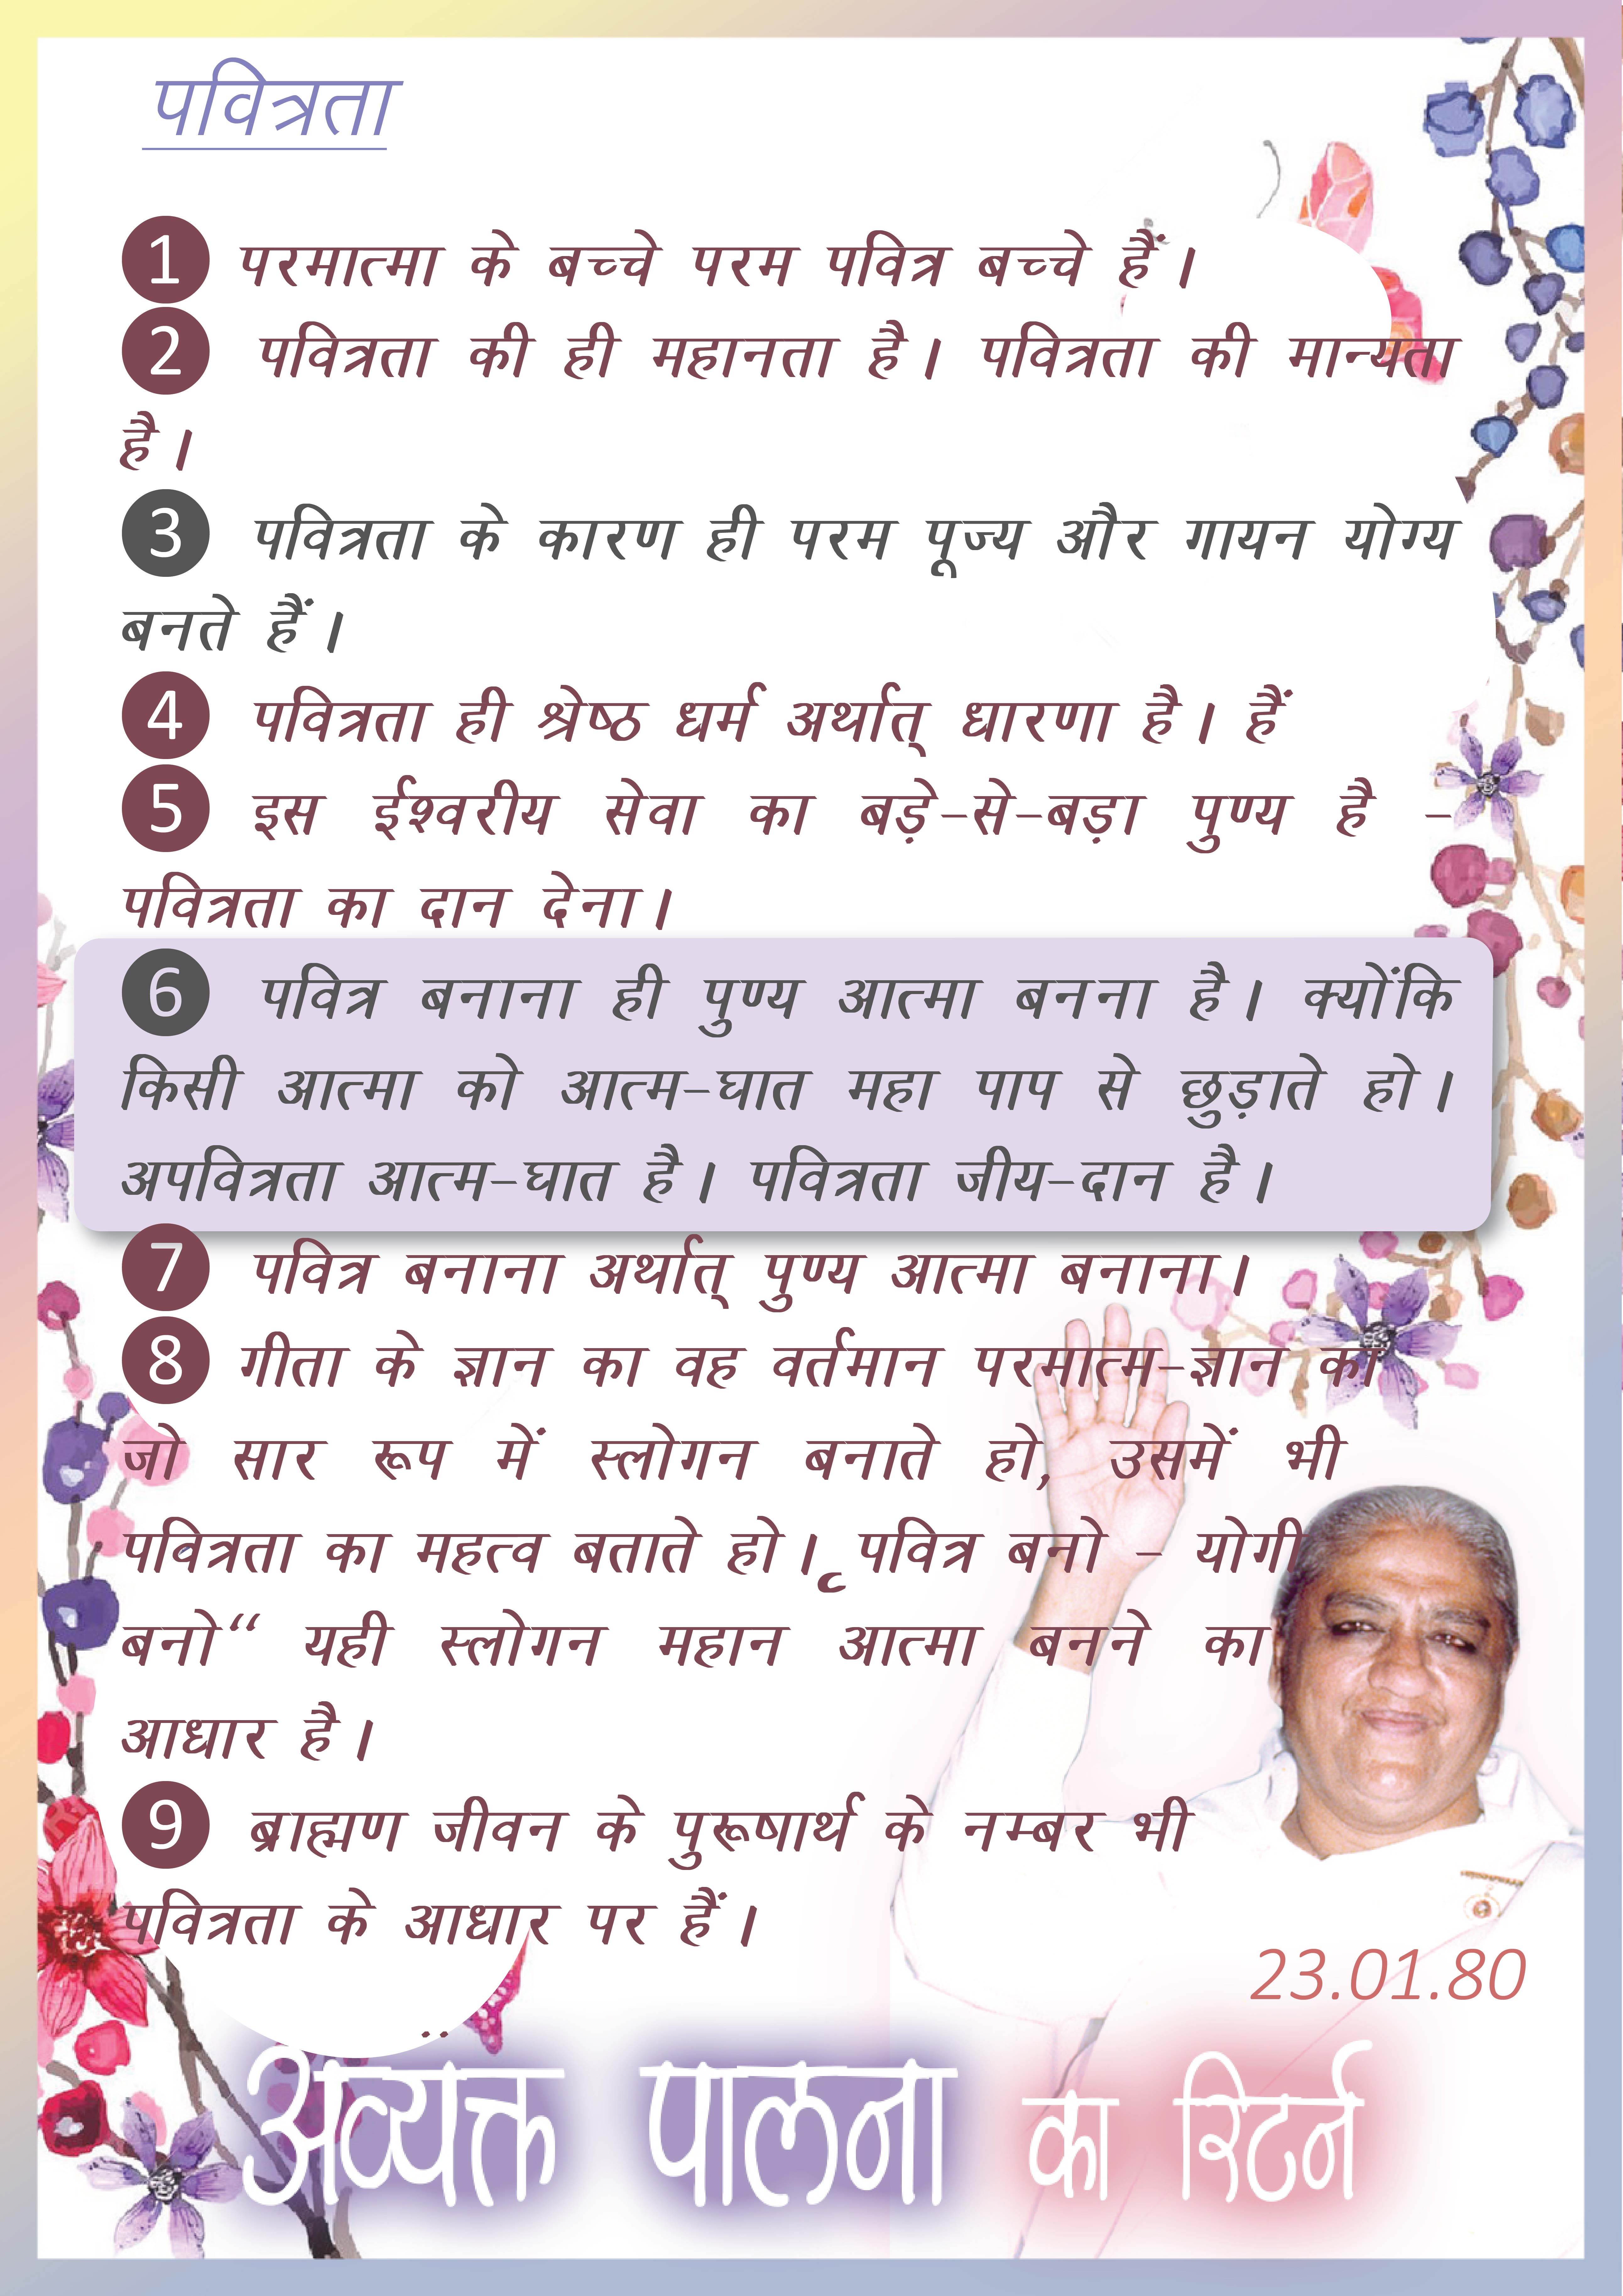 पवित्रता
1 परमात्मा के बच्चे परम पवित्र बच्चे हैं।
2 पवित्रता की ही महानता है। पवित्रता की मान्यता
है।
3 पवित्रता के कारण ही परम पूज्य और गायन योग्य
बनते हैं।
4 पवित्रता ही श्रेष्ठ धर्म अर्थात् धारणा है। हैं
5 इस ईश्वरीय सेवा का बड़े-से-बड़ा पुण्य है -
पवित्रता का दान देना।
6 पवित्र बनाना ही पुण्य आत्मा बनना है। क्योंकि
किसी आत्मा को आत्म-घात महा पाप से छुड़ाते हो।
अपवित्रता आत्म-घात है। पवित्रता जीय-दान है।
7 पवित्र बनाना अर्थात् पुण्य आत्मा बनाना।
8 गीता के ज्ञान का वह वर्तमान परमात्म-ज्ञान का
जो सार रूप में स्लोगन बनाते हो, उसमें भी
पवित्रता का महत्व बताते हो। पवित्र बनो - योगी
बनो“ यही स्लोगन महान आत्मा बनने का
आधार है।
9 ब्राह्मण जीवन के पुरूषार्थ के नम्बर भी
पवित्रता के आधार पर हैं।
23.01.80
अव्यक्त पालना का रिटर्न